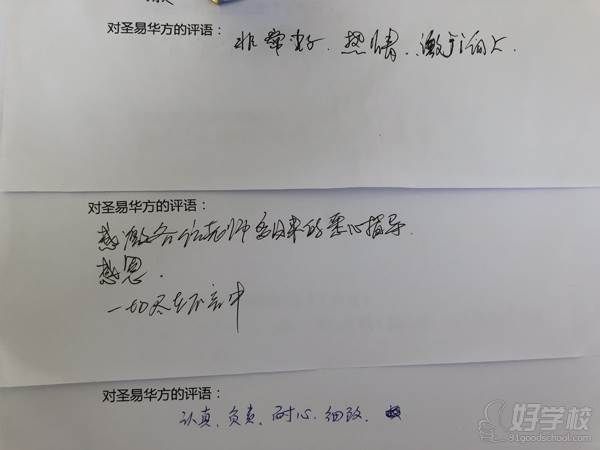 对圣易华方的评语：
非常好、热情、激
对圣易华方的评语：
感激各位老师多日来的悉心指导.
感恩.
一切尽在不言中
对圣易华方的评语：
认真、负责、耐心、细致.
好学校
91goodschool.com